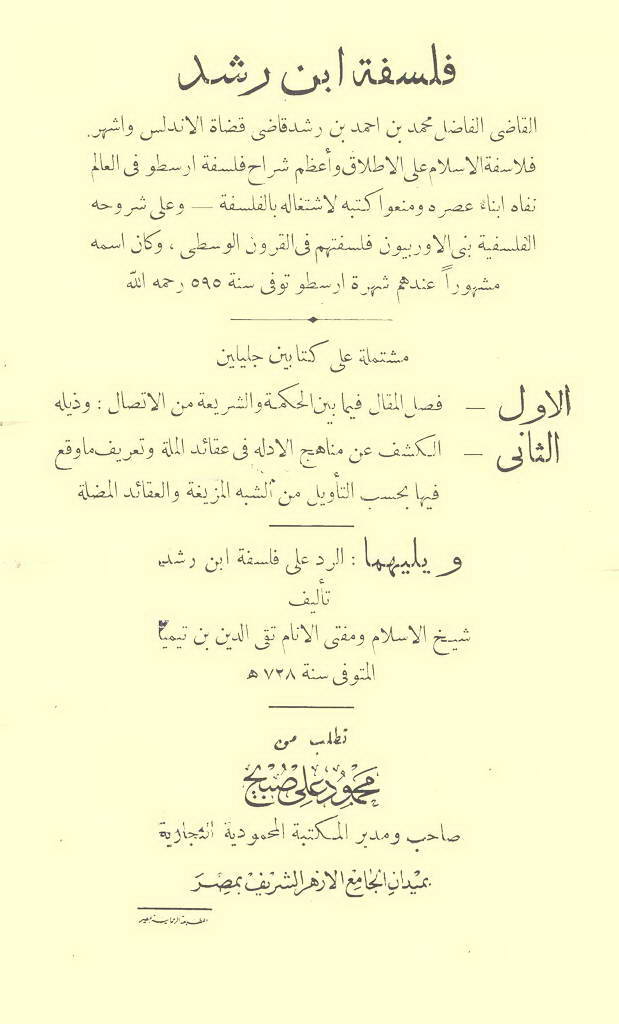 فلسفة ابن رشد
القاضى الفاضل محمد بن احمد بن رشد قاضى قضاة الاندلس واشهر
فلاسفة الاسلام على الاطلاق وأعظم شراح فلسفة ارسطو فى العالم
نفاه ابناء عصره ومنعوا كتبه لاشتغاله بالفلسفة — وعلى شروحه
الفلسفية بنى الاوربيون فلسفتهم فى القرون الوسطى ، وكان اسمه
مشهوراً عندهم شهرة ارسطو توفى سنة ٥٩٥ رحمه الله
مشتملة على كتابين جليلين
الاول — فصل المقال فيما بين الحكمة والشريعة من الاتصال : وذيله
الثانى — الكشف عن مناهج الادله فى عقائد الملة وتعريف ماوقع
فيها بحسب التأويل من الشبه المزيغة والعقائد المضلة
ويليهما : الرد على فلسفة ابن رشد
تأليف
شيخ الاسلام ومفتى الانام تقى الدين بن تيمية
المتوفى سنة ٧٢٨ ه
تطلب من
محمود على صبيح
صاحب ومدير المكتبة المحمودية التجارية
بميدان الجامع الازهر الشريف بمصر
المطبعة الرحمانية بمصر